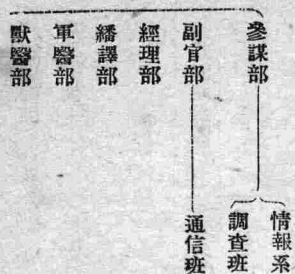 參謀部
情報系
調査班
副官部
通信班
經理部
繙譯部
軍醫部
獸醫部